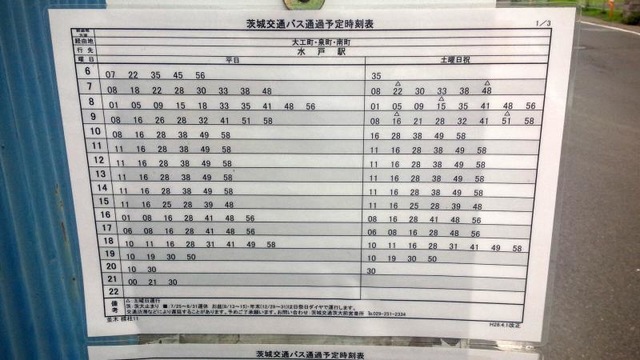 茨城交通バス通過予定時刻表
1/3
経由地 大工町・泉町・南町
行先 水戸駅
曜日 平日 土曜日祝
6 07 22 35 45 56 35
7 08 18 22 28 30 33 38 48 08 △22 30 33 38 △48
8 01 05 09 15 18 33 35 41 48 56 01 05 09 △15 35 41 48 56
9 08 16 26 28 32 41 51 58 08 △16 21 28 32 41 △51 58
10 08 16 28 38 49 58 16 28 38 49 58
11 11 16 28 38 49 58 11 16 28 38 49 58
12 11 16 28 38 49 58 11 16 28 38 49 58
13 11 16 28 38 49 58 11 16 28 38 49 58
14 11 16 28 38 49 58 11 16 28 38 49 58
15 11 16 25 28 39 48 11 16 25 28 39 48
16 01 08 16 28 41 48 56 08 16 28 41 48 56
17 06 08 16 28 41 48 56 06 08 16 28 41 48 56
18 10 11 16 28 31 41 49 58 10 11 16 28 31 41 49 58
19 10 19 30 50 10 19 30 50
20 10 30 30
21 00 21 30
22
備考
△:土曜日運行
交通渋滞などにより遅延することがあります。予めご了承願います。お問い合わせ:茨城交通茨大前営業所 Tel.029-251-2334
H28.4.1改正
茨城交通バス通過予定時刻表